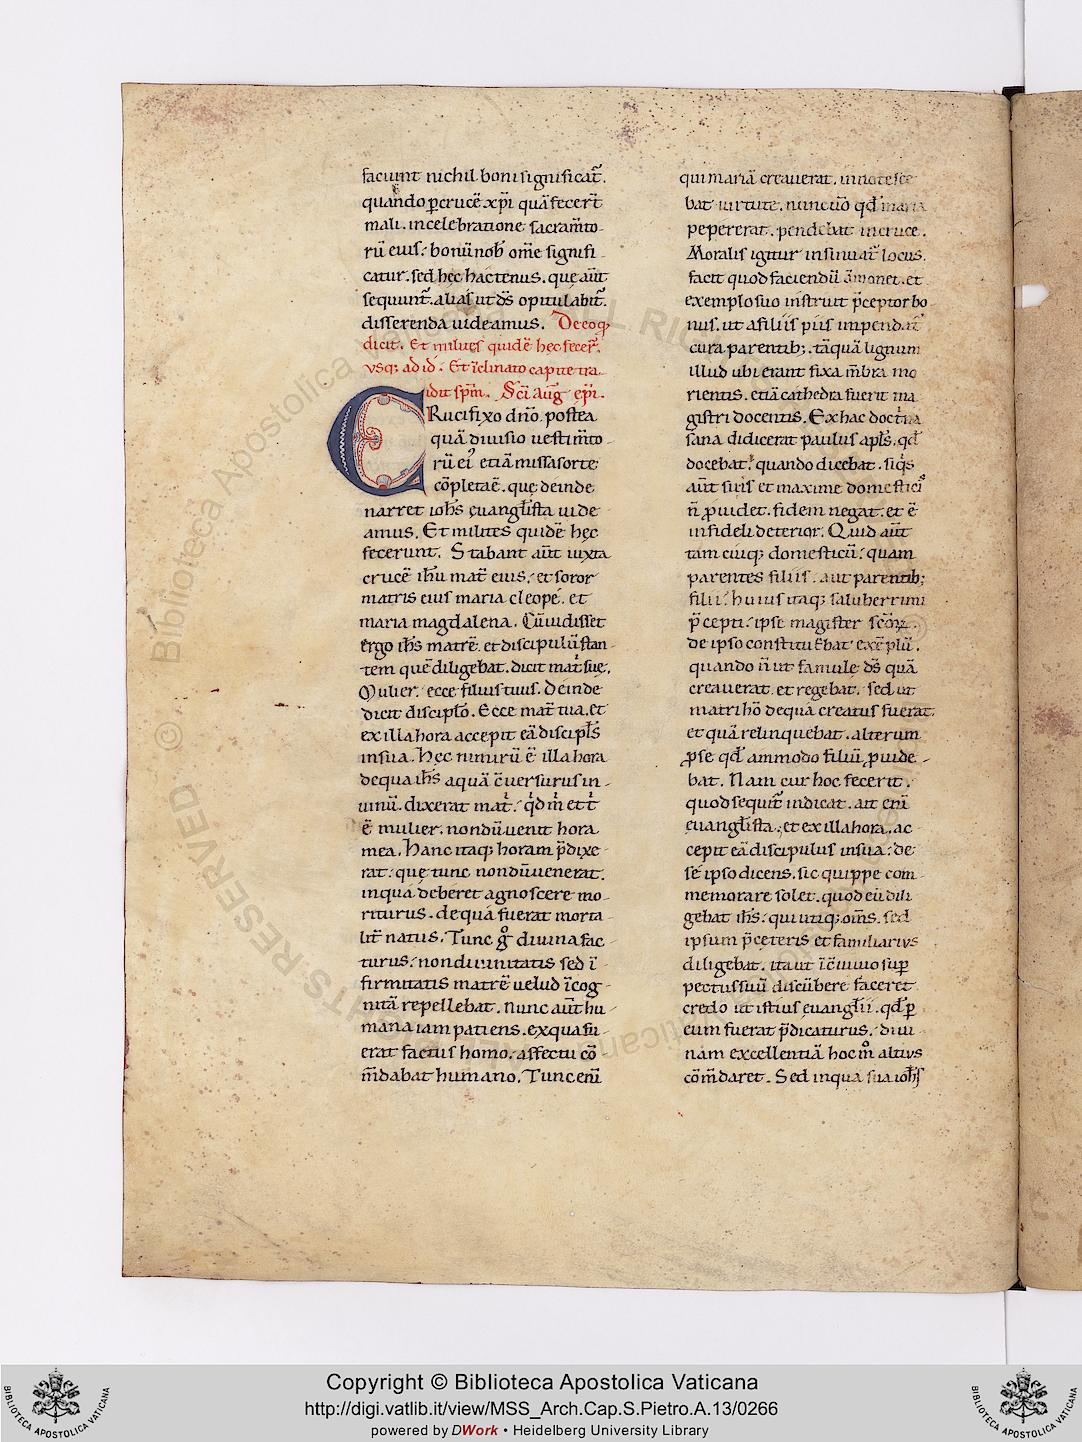 faciunt nichil boni significat̃.
quando ꝑcrucẽ xp̃i quã fecer̃t
mali. in celebratione sacram̃to
rũ eius: bonũ nob̃ om̃e signifi
catur. sed hęc hactenus. quę aũt
sequunt̃. alias ut d̃s opitulabit̃.
disserenda uideamus. De eoq;
dicit. Et milites quidẽ hęc fecer̃.
vsq; ad id̃. Et ĩclinato capite tra
idit sp̃m. Sc̃i Aug̃ ep̃i.
CRucifixo dño. postea
quã diuisio uestim̃to
rũ ei᾽ etiã missa sorte
cõpleta ẽ. quę deinde
narret ioh̃s euangl̃ista uide
amus. Et milites quidẽ hęc
fecerunt. Stabant aũt iuxta
crucẽ ih̃u mat̃ eius: et soror
matris eius maria cleopę. et
maria magdalena. Cũ uidisset
ergo ih̃s matrẽ. et discipulũ stan
tem quẽ diligebat. dicit mat̃ suę.
Mulier. ecce filius tuus. Deinde
dicit discipl̃o. Ecce mat̃ tua. et
ex illa hora accepit eã discipl̃s
in sua. Hęc nimirũ ẽ illa hora
de qua ih̃s aquã c̃uersurus in
uinũ. dixerat mat̃: q̃d m̃ et t̃
ẽ mulier. nondũ uenit hora
mea. Hanc itaq; horam p̃dixe
rat: quę tunc nondũ uenerat.
in qua deberet agnoscere mo
riturus. de qua fuerat morta
lit̃ natus. Tunc g̊ diuina fac
turus: non diuinitatis sed ĩ
firmitatis matrẽ uelud ĩcog
nitã repellebat. Nunc aũt hu
mana iam patiens. ex qua fu
erat factus homo: affectu cõ
m̃dabat humano. Tunc enĩ
qui mariã creauerat. innotesce
bat uirtute. nunc ũo qd̃ maria
pepererat. pendebat in cruce.
Moralis igitur insinuat̃ locus.
facit quod faciendũ ãmonet. et
exemplo suo instruit p̃ceptor bo
nus. ut a filiis piis impendat̃
cura parentib;. tãquã lignum
illud ubi erant fixa m̃bra mo
rientis. etiã cathedra fuerit ma
gistri docentis. Ex hac doct̃na
sana didicerat paulus apl̃s. qd̃
docebat: quando dicebat. siq̃s
aũt suis et maxime domestici᾽
ñ ꝓuidet. fidem negat. et ẽ
infideli deterior. Quid aũt
tam cuiq; domesticũ: quam
parentes filiis: aut parentib;
filii: huius itaq; saluberrimi
p̃cepti: ipse magister sc̃oꝝ.
de ipso constituebat exẽplũ.
quando ñ ut famule d̃s quã
creauerat. et regebat. sed ut
matri hõ de qua creatus fuerat.
et quã relinquebat. alterum
ꝓ se qd̃ ammodo filiũ ꝓuide
bat. Nam cur hoc fecerit:
quod sequit̃ indicat. ait enĩ
euangl̃ista: et ex illa hora. ac
cepit eã discipulus in sua: de
se ipso dicens. sic quippe com
memorare solet. quod eũ dili
gebat ih̃s: qui utiq; om̃s. sed
ipsum p̃ceteris et familiarius
diligebat. ita ut ĩ c̃uiuio suꝑ
pectus suũ discũbere faceret
credo ut istius euangl̃ii. qd̃ ꝑ
eum fuerat p̃dicaturus: diui
nam excellentiã hoc m̊ altius
cõm̃daret. Sed in qua sua ioh̃s
Copyright © Biblioteca Apostolica Vaticana
http://digi.vatlib.it/view/MSS_Arch.Cap.S.Pietro.A.13/0266
powered by DWork • Heidelberg University Library
BIBLIOTECA APOSTOLICA VATICANA
BIBLIOTECA APOSTOLICA VATICANA